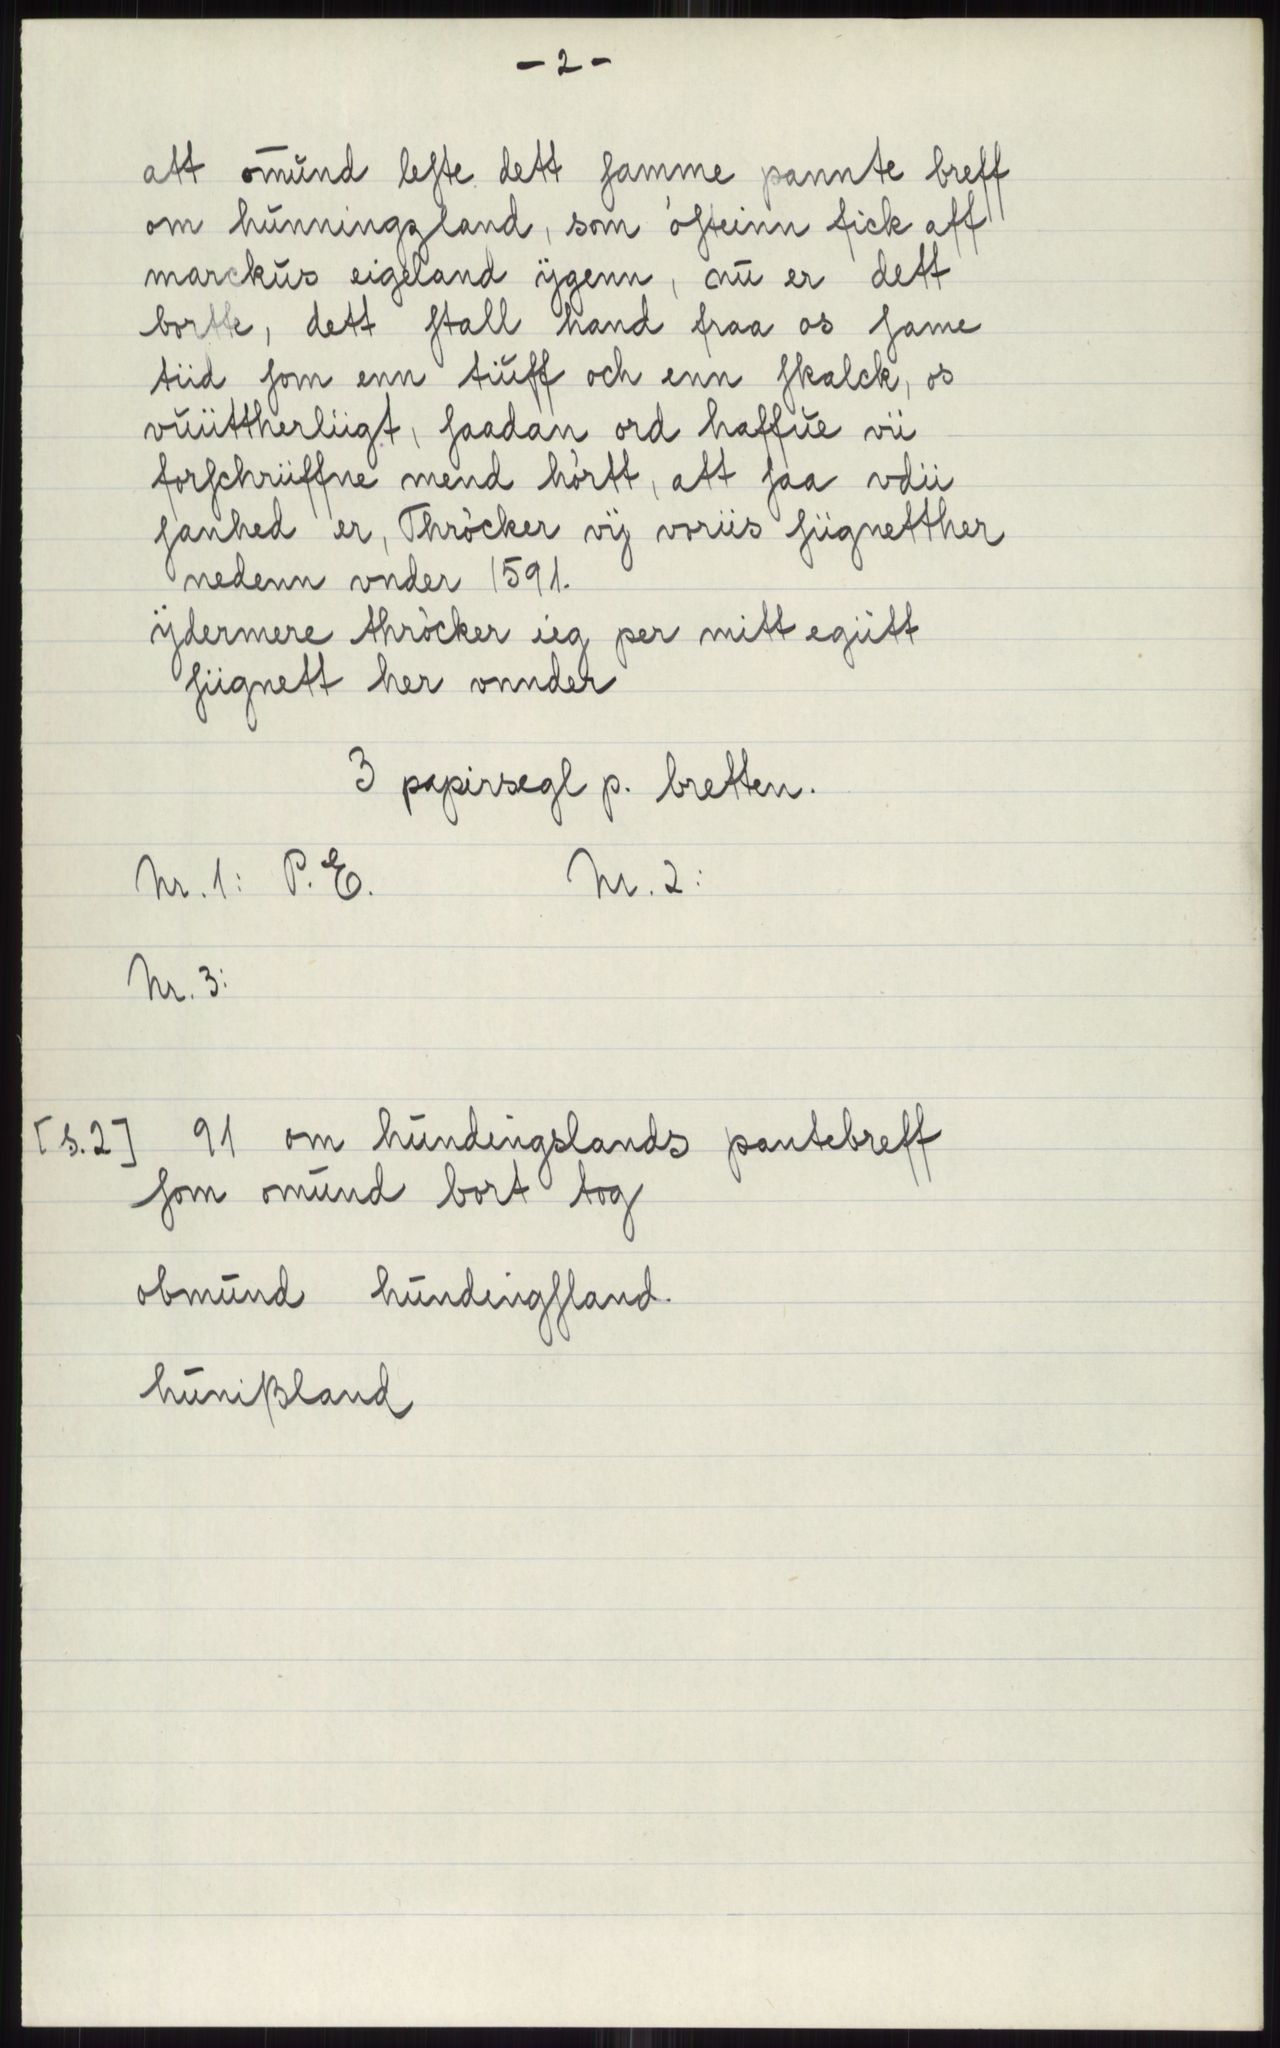 - 2 -
att omūnd leſte dett ſamme pannte breff
om hūnningzland, som òſteinn fick aff
marckūs eigeland ÿgenn, nū er dett
bortte, dett ſtall hand fraa os ſame
tiid ſom enn tiūff och enn ſkalck, os
vūüttherliigt, ſaadan ord haffūe vii
forſchriiffne mend hòrtt, att ſaa vdii
ſanhed er, Thròcker vij voriis ſiignetther
nedenn vnder 1591.
ÿdermere thròcker ieg per mitt egiitt
ſiignett her vnnder
3 papirsegl p. bretten.
Nr. 1: P. E. Nr. 2:
Nr. 3:
[s. 2] 91 om hūndingslands pantebreff
ſom omūnd bort tog
obmūnd hūndingſland.
hūnißland